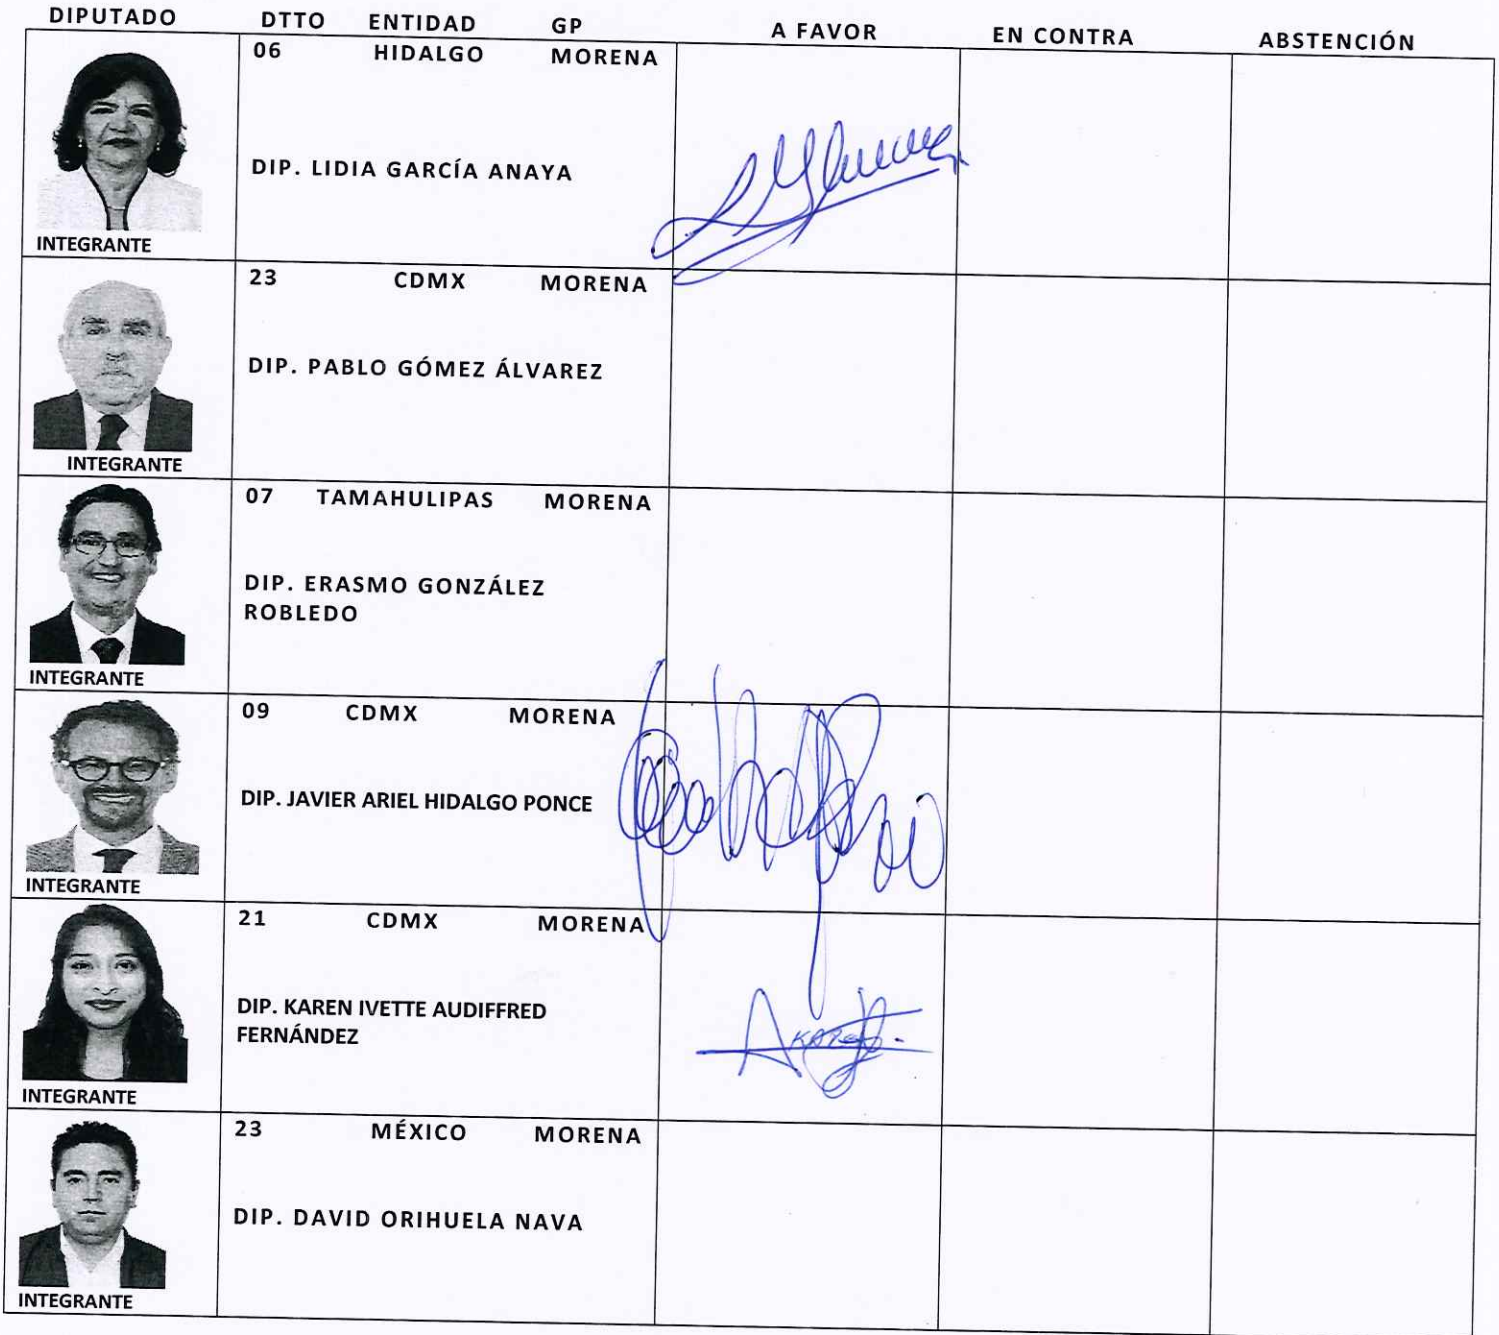 DIPUTADO DTTO ENTIDAD GP A FAVOR EN CONTRA ABSTENCIÓN
06 HIDALGO MORENA
DIP. LIDIA GARCÍA ANAYA
INTEGRANTE
23 CDMX MORENA
DIP. PABLO GÓMEZ ÁLVAREZ
INTEGRANTE
07 TAMAHULIPAS MORENA
DIP. ERASMO GONZÁLEZ
ROBLEDO
INTEGRANTE
09 CDMX MORENA
DIP. JAVIER ARIEL HIDALGO PONCE
INTEGRANTE
21 CDMX MORENA
DIP. KAREN IVETTE AUDIFFRED
FERNÁNDEZ
INTEGRANTE
23 MÉXICO MORENA
DIP. DAVID ORIHUELA NAVA
INTEGRANTE